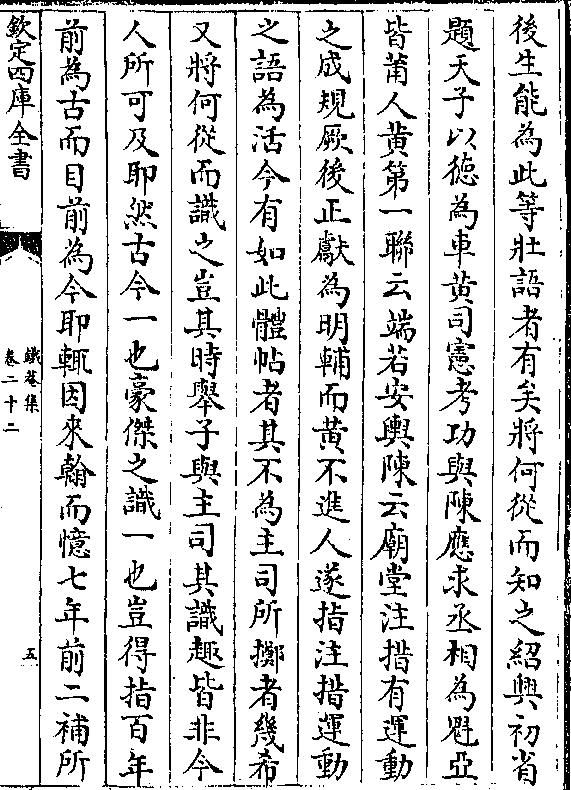 後生能為此等壯語者有矣將何從而知之紹興初省
題天子以德為車黄司憲考功與陳應求丞相為魁亞
皆莆人黄第一聯云端若安輿陳云廟堂注措有運動
之成規厥後正獻為明輔而黄不進人遂指注措運動
之語為活今有如此體帖者其不為主司所擲者幾希
又將何從而識之豈其時舉子與主司其識趣皆非今
人所可及耶然古今一也豪傑之識一也豈得指百年
前為古而目前為今耶輒因來翰而憶七年前二補所
欽定四庫全書
鐵菴集
卷二十二
五